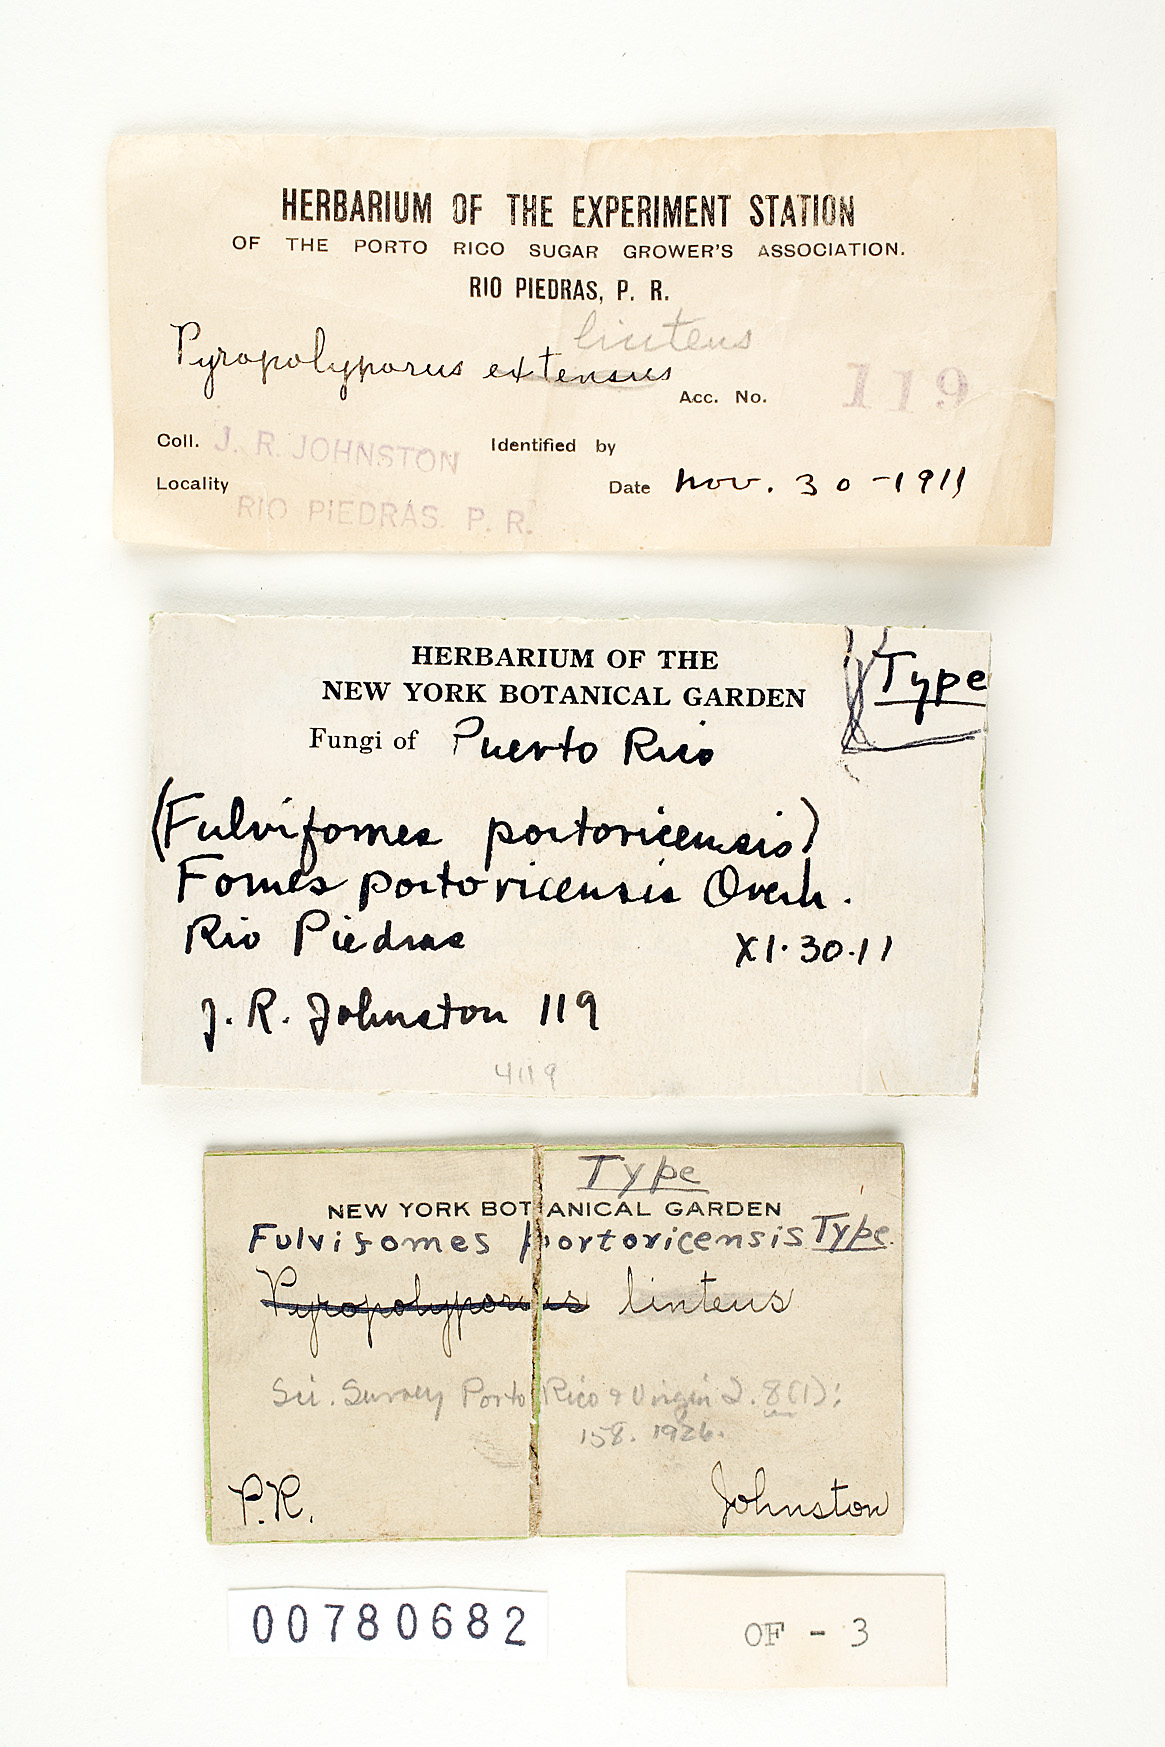 HERBARIUM OF THE EXPERIMENT STATION
OF THE PORTO RICO SUGAR GROWER'S ASSOCIATION.
RIO PIEDRAS, P. R.
linteus
Pyropolyporus extensus
Acc. No. 119
Coll. J. R. JOHNSTON Identified by
Locality RIO PIEDRAS. P. R. Date Nov. 30-1911
HERBARIUM OF THE
NEW YORK BOTANICAL GARDEN
Type
Fungi of Puerto Rico
(Fulvifomes portoricensis)
Fomes portoricensis Overh.
Rio Piedras XI.30.11
J. R. Johnston 119
4119
Type
NEW YORK BOTANICAL GARDEN
Fulvifomes portoricensis Type
Pyropolyporus linteus
Sci. Survey Porto Rico & Virgin I. 8(1):
158. 1926.
P.R. Johnston
00780682
OF - 3